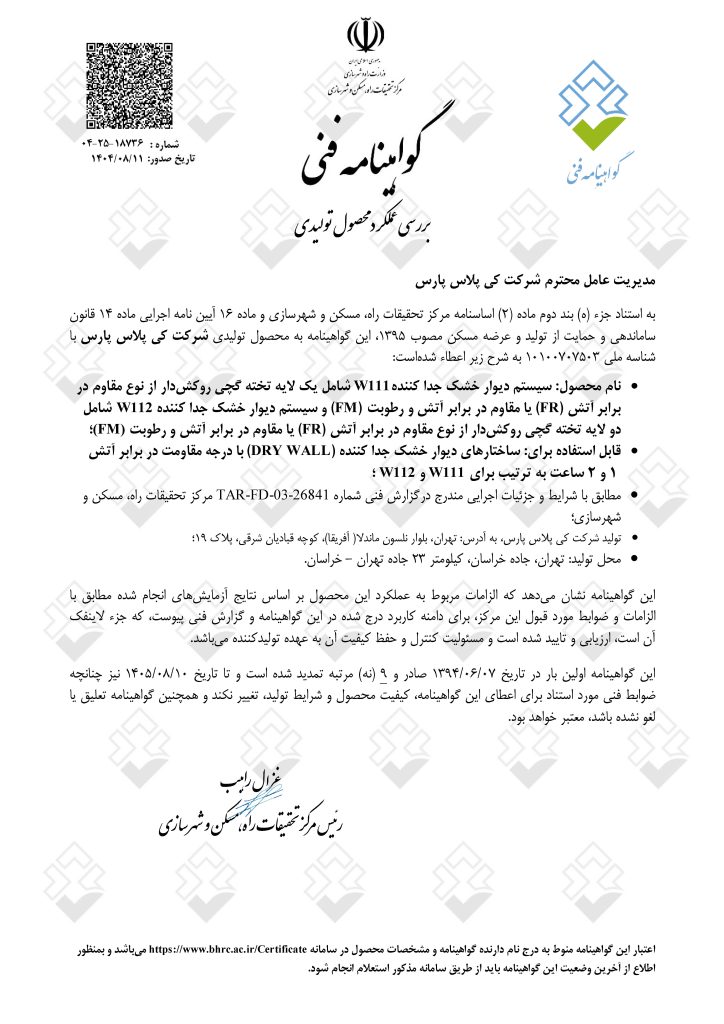 جمهوری اسلامی ایران
وزارت راه و شهرسازی
مرکز تحقیقات راه، مسکن و شهرسازی
شماره : ۱۸۷۳۶-۲۵-۰۴
تاریخ صدور: ۱۴۰۴/۰۸/۱۱
گواهینامه فنی
گواهینامه فنی
بررسی عملکرد محصول تولیدی
مدیریت عامل محترم شرکت کی پلاس پارس
به استناد جزء (ه) بند دوم ماده (۲) اساسنامه مرکز تحقیقات راه، مسکن و شهرسازی و ماده ۱۶ آیین نامه اجرایی ماده ۱۴ قانون
ساماندهی و حمایت از تولید و عرضه مسکن مصوب ۱۳۹۵، این گواهینامه به محصول تولیدی شرکت کی پلاس پارس با
شناسه ملی ۱۰۱۰۰۷۰۷۵۰۳ به شرح زیر اعطاء شده‌است:
• نام محصول: سیستم دیوار خشک جدا کننده W111 شامل یک لایه تخته گچی روکش‌دار از نوع مقاوم در
برابر آتش (FR) یا مقاوم در برابر آتش و رطوبت (FM) و سیستم دیوار خشک جدا کننده W112 شامل
دو لایه تخته گچی روکش‌دار از نوع مقاوم در برابر آتش (FR) یا مقاوم در برابر آتش و رطوبت (FM)؛
• قابل استفاده برای: ساختارهای دیوار خشک جدا کننده (DRY WALL) با درجه مقاومت در برابر آتش
۱ و ۲ ساعت به ترتیب برای W111 و W112 ؛
• مطابق با شرایط و جزئیات اجرایی مندرج درگزارش فنی شماره TAR-FD-03-26841 مرکز تحقیقات راه، مسکن و
شهرسازی؛
• تولید شرکت کی پلاس پارس، به آدرس: تهران، بلوار نلسون ماندلا( آفریقا)، کوچه قبادیان شرقی، پلاک ۱۹؛
• محل تولید: تهران، جاده خراسان، کیلومتر ۲۳ جاده تهران – خراسان.
این گواهینامه نشان می‌دهد که الزامات مربوط به عملکرد این محصول بر اساس نتایج آزمایش‌های انجام شده مطابق با
الزامات و ضوابط مورد قبول این مرکز، برای دامنه کاربرد درج شده در این گواهینامه و گزارش فنی پیوست، که جزء لاینفک
آن است، ارزیابی و تایید شده است و مسئولیت کنترل و حفظ کیفیت آن به عهده تولیدکننده می‌باشد.
این گواهینامه اولین بار در تاریخ ۱۳۹۴/۰۶/۰۷ صادر و ۹ (نه) مرتبه تمدید شده است و تا تاریخ ۱۴۰۵/۰۸/۱۰ نیز چنانچه
ضوابط فنی مورد استناد برای اعطای این گواهینامه، کیفیت محصول و شرایط تولید، تغییر نکند و همچنین گواهینامه تعلیق یا
لغو نشده باشد، معتبر خواهد بود.
غزال راهب
رئیس مرکز تحقیقات راه، مسکن و شهرسازی
اعتبار این گواهینامه منوط به درج نام دارنده گواهینامه و مشخصات محصول در سامانه https://www.bhrc.ac.ir/Certificate می‌باشد و بمنظور
اطلاع از آخرین وضعیت این گواهینامه باید از طریق سامانه مذکور استعلام انجام شود.